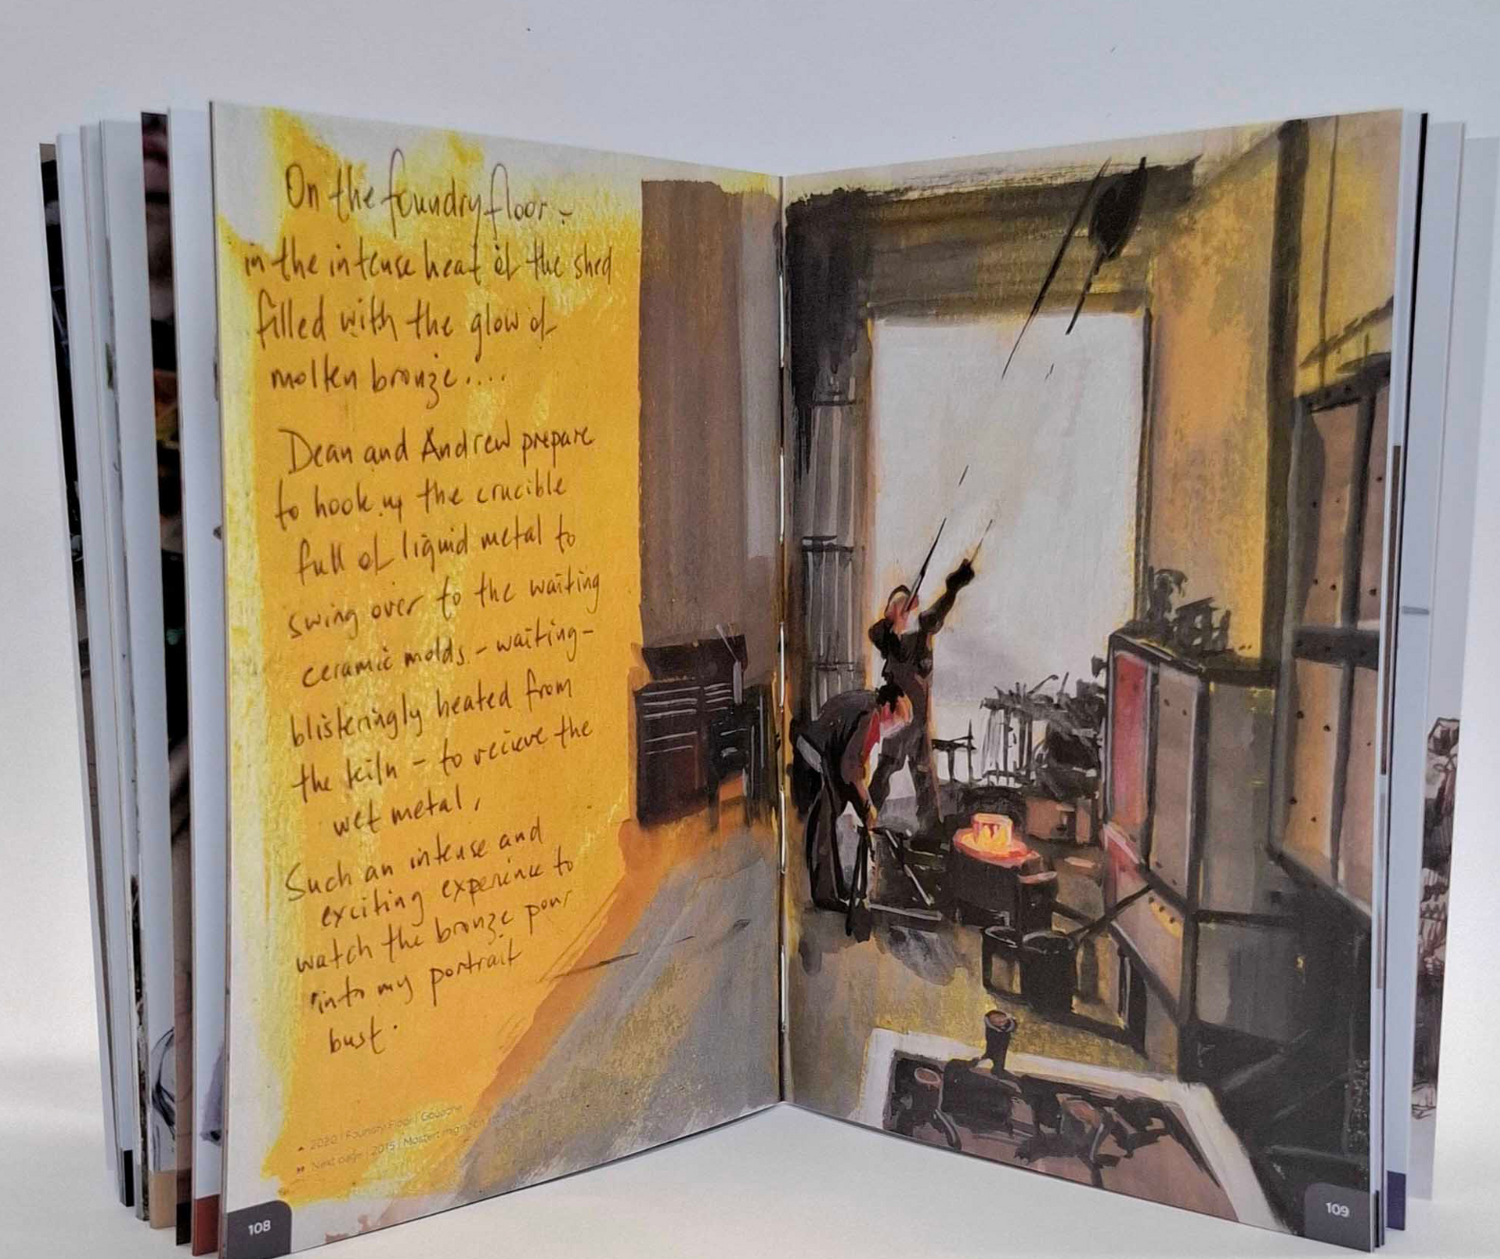 On the foundry floor -
in the intense heat of the shed
filled with the glow of
molten bronze....
Dean and Andrew prepare
to hook up the crucible
full of liquid metal to
swing over to the waiting
ceramic molds - waiting -
blisteringly heated from
the kiln - to recieve the
wet metal,
Such an intense and
exciting experience to
watch the bronze pour
into my portrait
bust.
2020 | Foundry Floor | Gouache
Next page | 2015 |
108
109